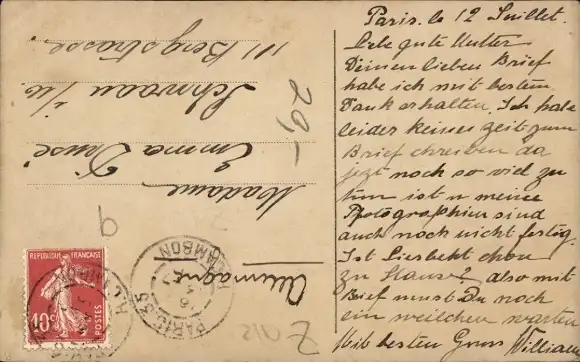 Paris. le 12 Juillet.
Liebe gute Mutter
Deinen lieben Brief
habe ich mit bestem
Dank erhalten. Ich habe
leider keines zeit zum
Brief chreiben da
jezt noch so viel zu
tun ist u meine
Photographien sind
auch noch nicht fertig.
Ist Liesbeht chon
zu Hause? also mit
Brief must Du noch
ein weilchen warten
Mit besten Gruss William
Madame
Emma
Schwaan i/M
111 Bergstrasse
Allemagne
29,-
9
REPUBLIQUE FRANÇAISE
10c
POSTES
PARIS